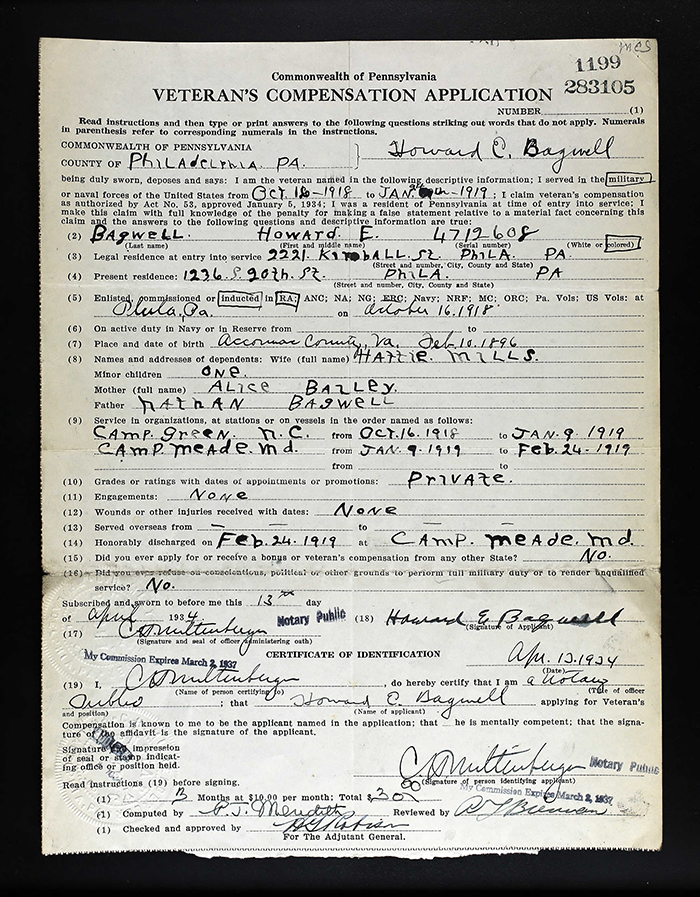 MCS
1199
283105
Commonwealth of Pennsylvania
VETERAN'S COMPENSATION APPLICATION
NUMBER (1)
Read instructions and then type or print answers to the following questions striking out words that do not apply. Numerals
in parenthesis refer to corresponding numerals in the instructions.
COMMONWEALTH OF PENNSYLVANIA
COUNTY OF PhiLADelphia PA. } Howard E. Bagwell
being duly sworn, deposes and says: I am the veteran named in the following descriptive information; I served in the military
or naval forces of the United States from Oct. 16-1918 to JAN. -1919; I claim veteran's compensation
as authorized by Act No. 53, approved January 5, 1934; I was a resident of Pennsylvania at time of entry into service; I
make this claim with full knowledge of the penalty for making a false statement relative to a material fact concerning this
claim and the answers to the following questions and descriptive information are true:
(2) BAgwell. Howard E. 4712608
(Last name) (First and middle name) (Serial number) (White or colored)
(3) Legal residence at entry into service 2221. Kimball. St. PhilA. PA.
(Street and number, City, County and State)
(4) Present residence: 1236. S. 20th. St. PhilA. PA
(Street and number, City, County and State)
(5) Enlisted, commissioned or inducted in RA; ANC; NA; NG; ERC; Navy; NRF; MC; ORC; Pa. Vols; US Vols: at
Phila, Pa. on October 16, 1918
(6) On active duty in Navy or in Reserve from to
(7) Place and date of birth Accomac County, Va. Feb. 10. 1896
(8) Names and addresses of dependents: Wife (full name) HAttie. Mills.
Minor children one.
Mother (full name) Alice BAiley.
Father NAthan BAgwell
(9) Service in organizations, at stations or on vessels in the order named as follows:
CAmp. Green. N.C. from Oct. 16. 1918 to JAN. 9. 1919
CAmp. MeAde. Md. from JAN. 9. 1919 to Feb. 24. 1919
from to
(10) Grades or ratings with dates of appointments or promotions: PrivAte.
(11) Engagements: None
(12) Wounds or other injuries received with dates: None
(13) Served overseas from — — to —
(14) Honorably discharged on Feb. 24. 1919 at CAmp. MeAde. Md.
(15) Did you ever apply for or receive a bonus or veteran's compensation from any other State? No.
(16) Did you ever refuse on conscientious, political or other grounds to perform full military duty or to render unqualified
service? No.
Subscribed and sworn to before me this 13th day
of April 1934 Notary Public (18) Howard E Bagwell
(Signature of Applicant)
(17) C D Miltenberger
(Signature and seal of officer administering oath)
My Commission Expires March 2, 1937
CERTIFICATE OF IDENTIFICATION Apr. 13. 1934
(Date)
(19) I, C D Miltenberger, do hereby certify that I am a Notary
(Name of person certifying to) (Title of officer
Public ; that Howard E. Bagwell applying for Veteran's
and position) (Name of applicant)
Compensation is known to me to be the applicant named in the application; that he is mentally competent; that the signa-
ture of the affidavit is the signature of the applicant.
Signature and impression
of seal or stamp indicat-
ing office or position held. C D Miltenberger Notary Public
(Signature of person identifying applicant)
Read instructions (19) before signing. My Commission Expires March 2, 1937
(1) 3 Months at $10.00 per month; Total $30 00
(1) Computed by P. J. Meredith Reviewed by
(1) Checked and approved by
For The Adjutant General.